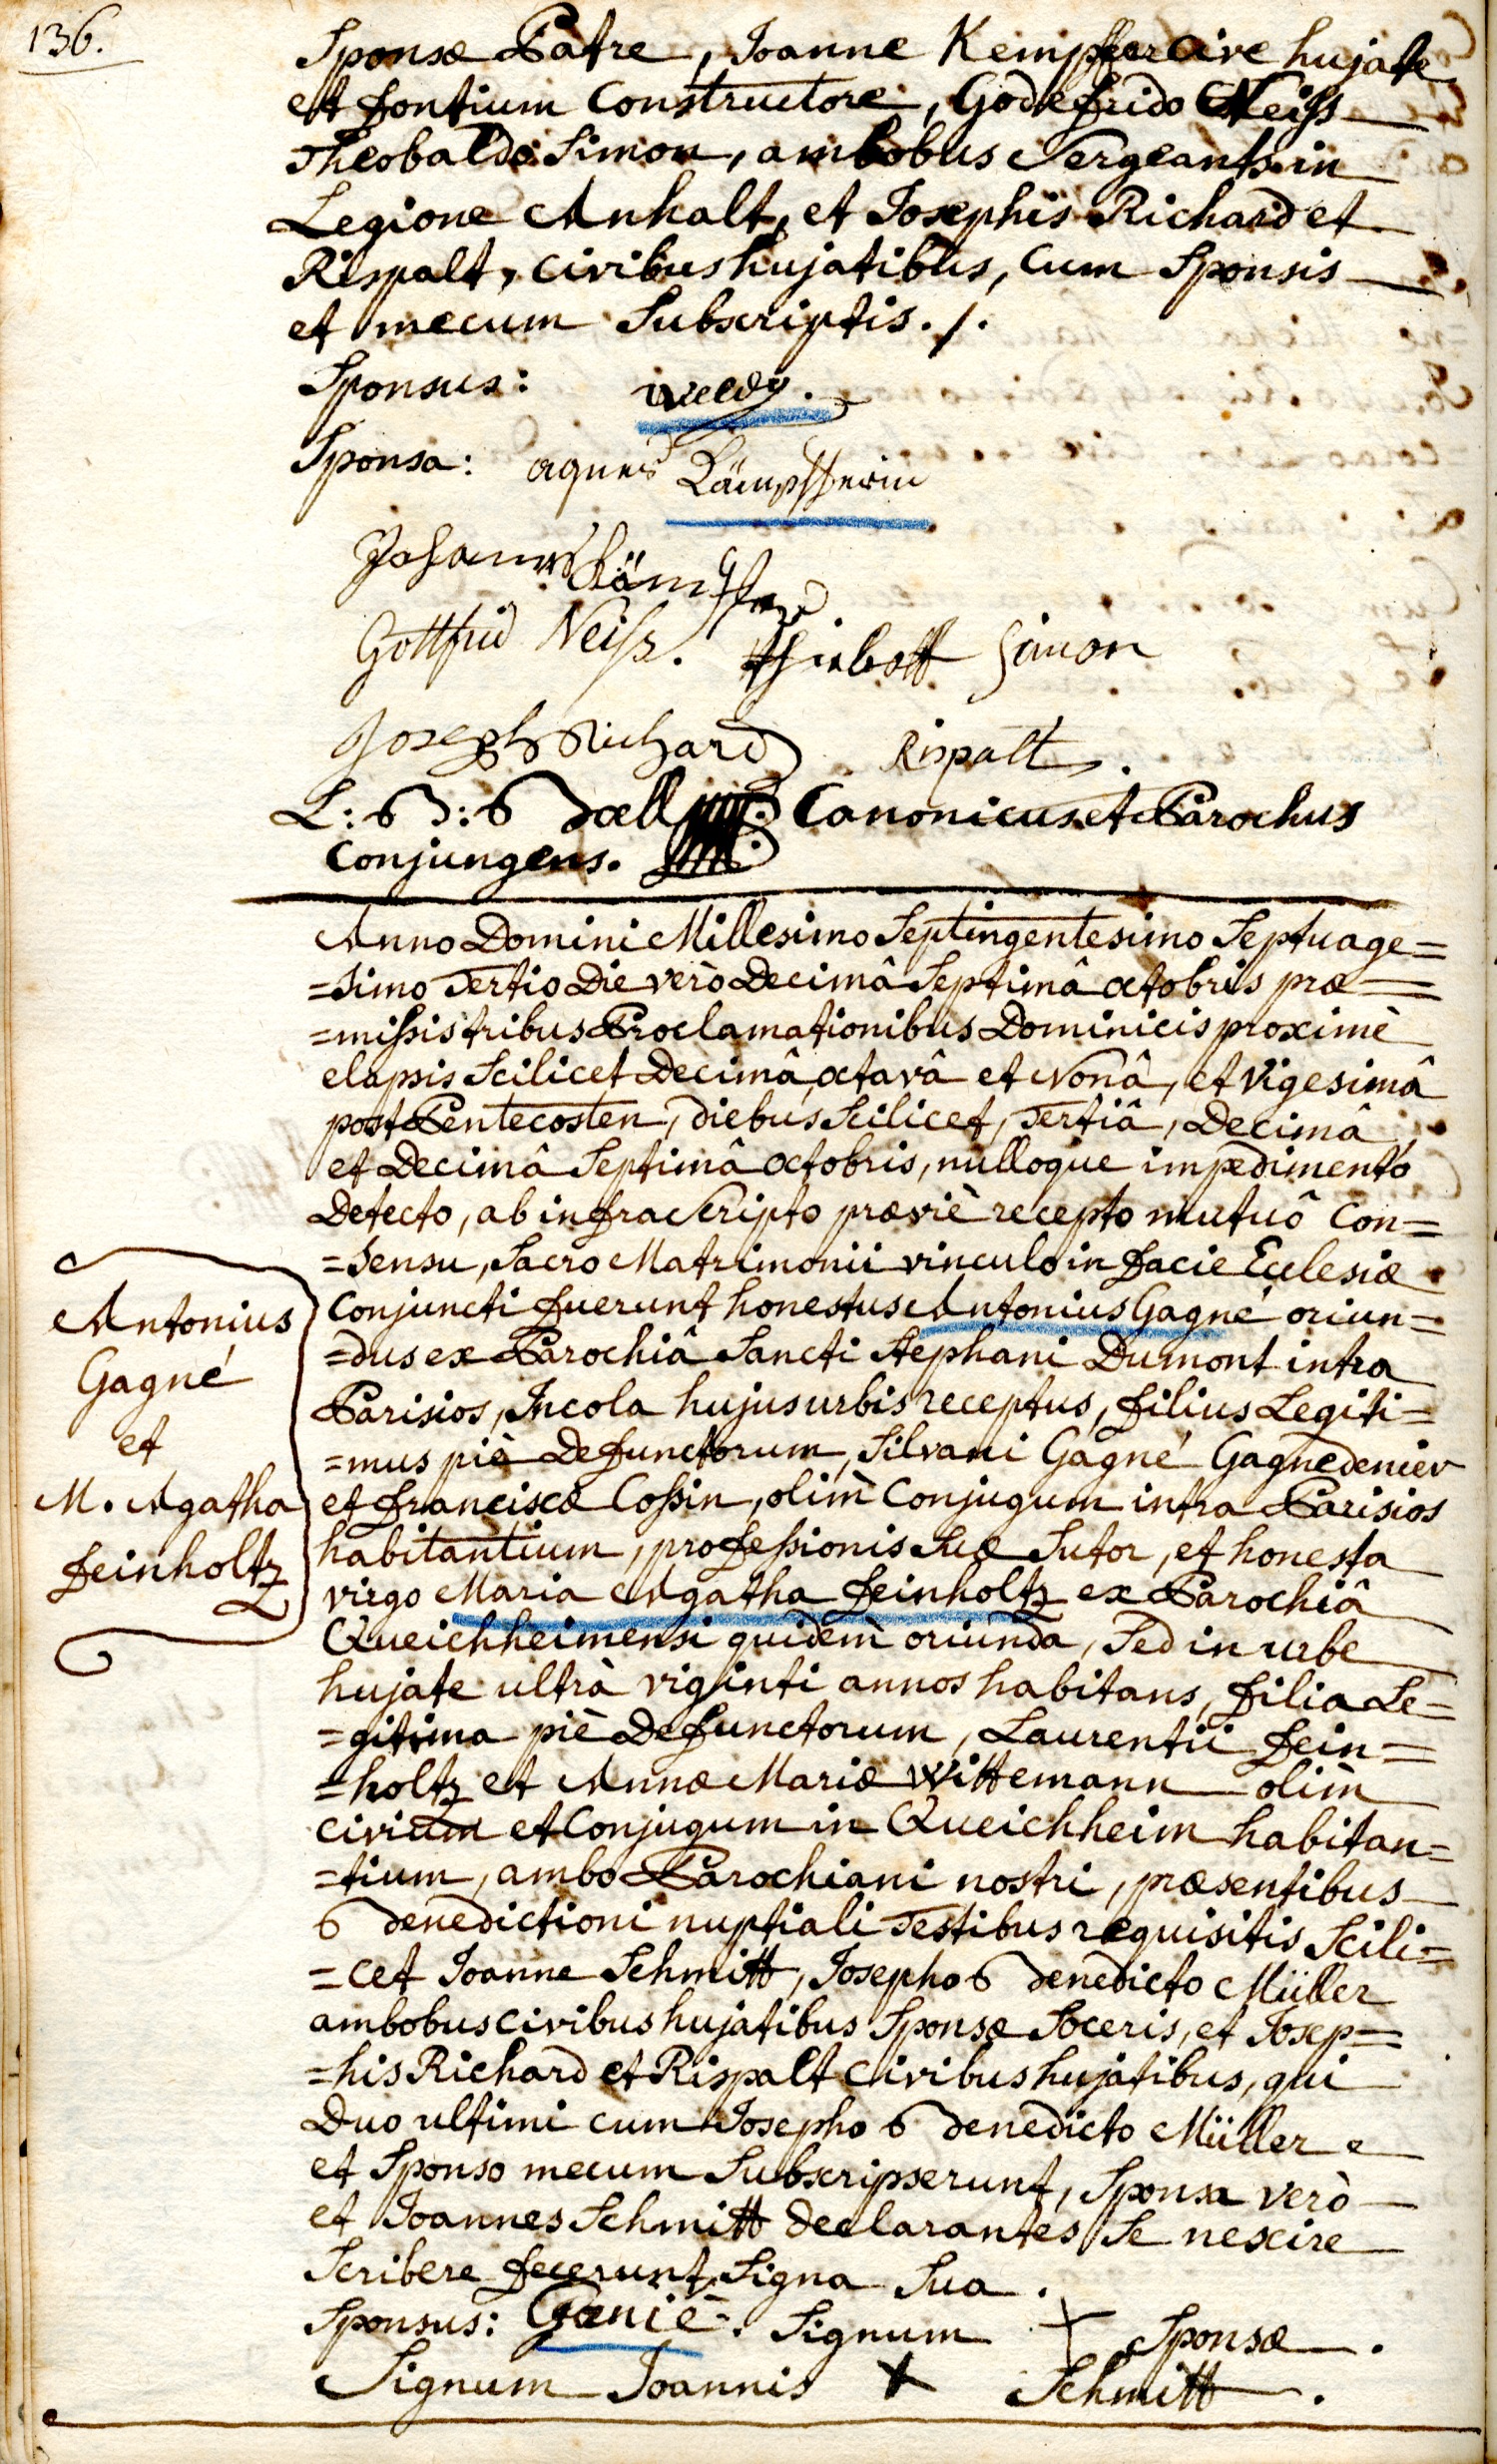 136.
Sponsæ Patre, Joanne Kempffer Cive hujate
et fontium Constructore, Godefrido Neiss
Theobaldo Simon, ambobus Sergeants in
Legione Anhalt, et Josephis Richard et
Rispalt, Civibus hujatibus, Cum Sponsis
et mecum Subscriptis./.
Sponsus: weldy.
Sponsa: agnes Kämpfferin
Johannes Kämpffer
Gottfrid Neiss. thiebolt simon
Joseph Richard Rispalt.
L: B: Boell Canonicus et Parochus
Conjungens.
Anno Domini Millesimo Septingentesimo Septuage=
=simo Tertio Die verò Decimâ Septimâ octobris præ=
=missis tribus Proclamationibus Dominicis proximè
elapsis Scilicet Decimâ octavâ et Nonâ, et vigesimâ
post Pentecosten, diebus Scilicet, Tertiâ, Decimâ,
et Decimâ Septimâ octobris, nulloque impedimento
Detecto, ab infra Scripto præviè recepto mutuô Con=
=sensu, Sacro Matrimonii vinculo in facie Ecclesiæ
Conjuncti fuerunt honestus Antonius Gagné oriun=
=dus ex Parochiâ Sancti Stephani Dumont intra
Parisios, Incola hujus urbis receptus, filius Legiti=
=mus piè Defunctorum, Silvani Gagné Gagnedenier
et Franciscæ Cossin, olim Conjugum intra Parisios
habitantium, professionis suæ Sutor, et honesta
virgo Maria Agatha Feinholtz ex Parochiâ
Queichheimensi quidem oriunda, Sed in urbe
hujate ultrà viginti annos habitans, filia Le=
=gitima piè Defunctorum, Laurentii Fein=
=holtz et Annæ Mariæ Wittemann olim
Civium et Conjugum in Queichheim habitan=
=tium, ambo Parochiani nostri, præsentibus
Benedictioni nuptiali Testibus requisitis Scili=
=cet Joanne Schmitt, Josepho Benedicto Müller
ambobus civibus hujatibus Sponsæ Soceris, et Josep=
=his Richard et Rispalt Civibus hujatibus, qui
Duo ultimi cum Josepho Benedicto Müller
et Sponso mecum Subscripserunt, Sponsa verò
et Joannes Schmitt declarantes Se nescire
Scribere fecerunt Signa Sua.
Sponsus: Ganiè. Signum + Sponsæ.
Signum Joannis X Schmitt.
Antonius
Gagné
et
M. Agatha
Feinholtz